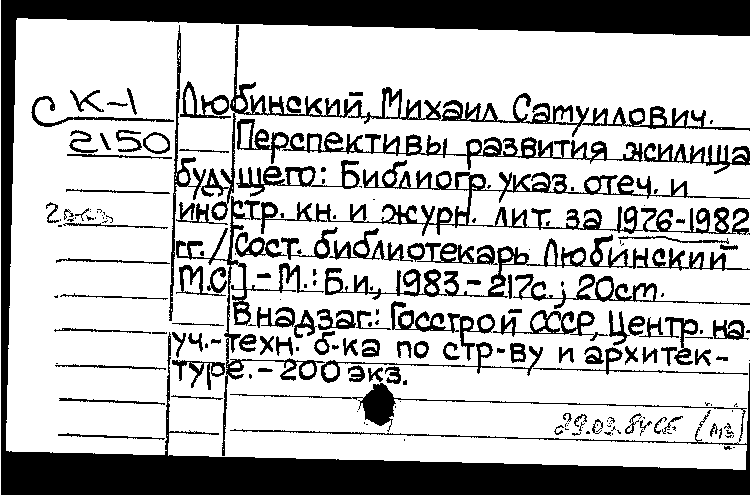 С К-1
2150
2 экз
Любинский, Михаил Сатуилович.
Перспективы развития жилища
будущего: Библиогр. указ. отеч. и
иностр. кн. и журн. лит. за 1976-1982
гг./[Сост. библиотекарь Любинский
М.С.]. - М.: Б.и., 1983. - 217с.; 20см.
В надзаг.: Госстрой СССР, Центр. на-
уч.-техн. б-ка по стр-ву и архитек-
туре. - 200 экз.
29.03.84 СБ